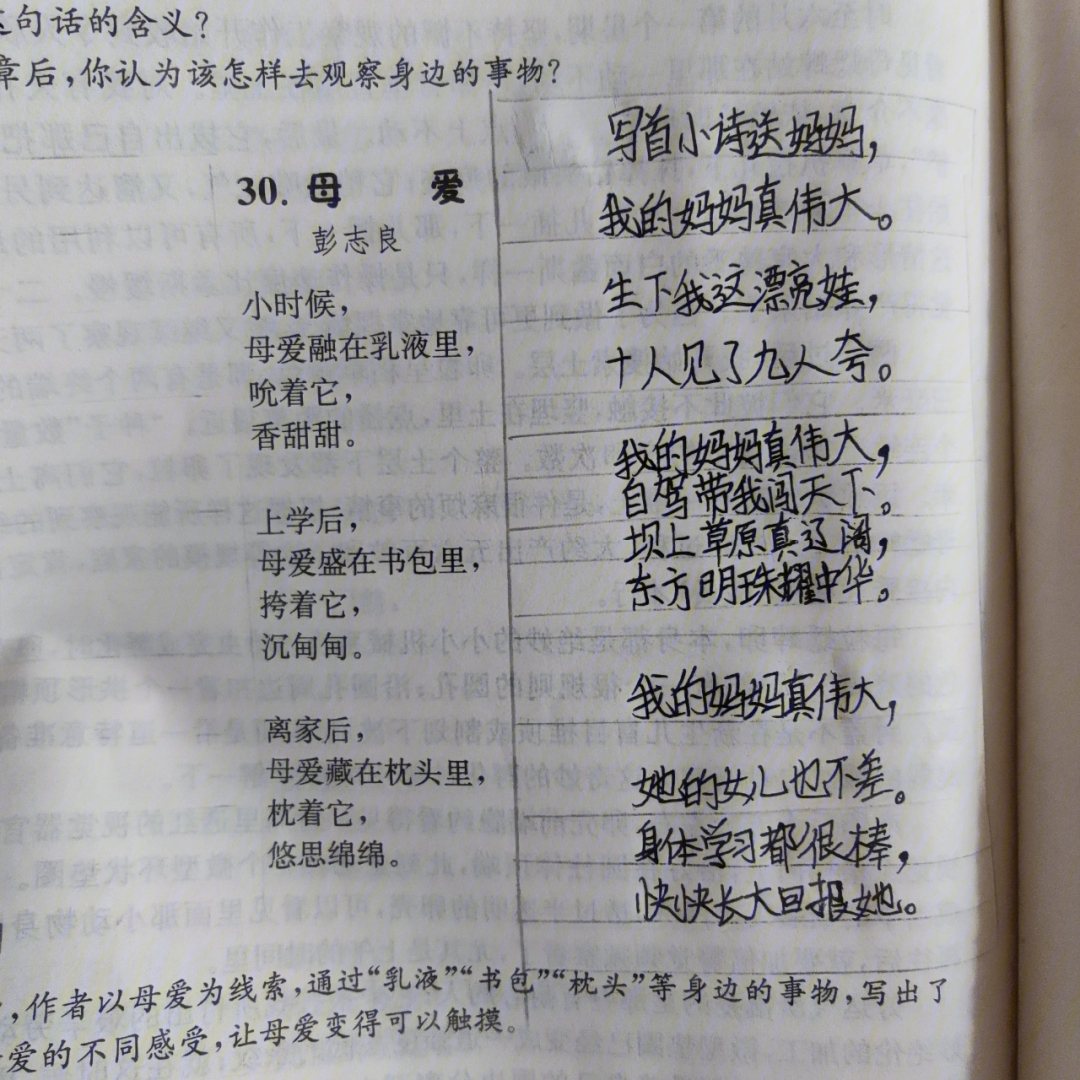 句话的含义?
章后,你认为该怎样去观察身边的事物?
30. 母 爱
彭志良
小时候,
母爱融在乳液里,
吮着它,
香甜甜。
上学后,
母爱盛在书包里,
挎着它,
沉甸甸。
离家后,
母爱藏在枕头里,
枕着它,
悠思绵绵。
写首小诗送妈妈,
我的妈妈真伟大。
生下我这漂亮娃,
十人见了九人夸。
我的妈妈真伟大,
自驾带我闯天下。
坝上草原真辽阔,
东方明珠耀中华。
我的妈妈真伟大,
她的女儿也不差。
身体学习都很棒,
快快长大回报她。
,作者以母爱为线索,通过“乳液”“书包”“枕头”等身边的事物,写出了
爱的不同感受,让母爱变得可以触摸。